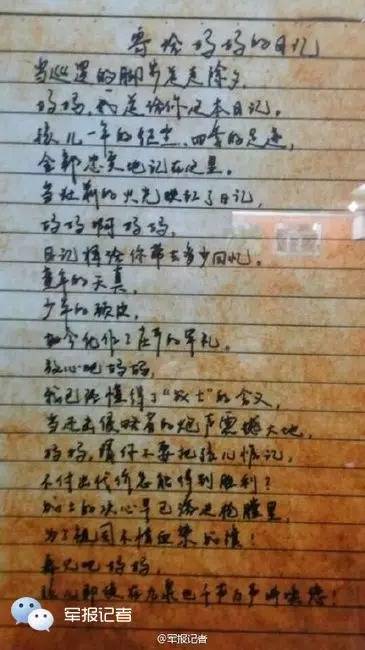 寄给妈妈的日记
当巡逻的脚步走走除夕,
妈妈,我是给你这本日记。
孩儿一年的征尘、四季的足迹,
全部忠实地记在这里。
当灶前的火光映红了日记,
妈妈啊妈妈,
日记将给你带去多少回忆。
童年的天真,
少年的顽皮,
如今化作了庄严的军礼。
放心吧妈妈,
我已经懂得了“战士”的含义,
当走击侵略者的炮声震撼大地,
妈妈,请你不要把孩儿惦记,
不付出代价怎能得到胜利?
战士的决心早已落进枪膛里,
为了祖国不惜血染战旗!
再见吧妈妈,
孩儿即使在九泉也千声百声呼唤您!
军报记者
@军报记者